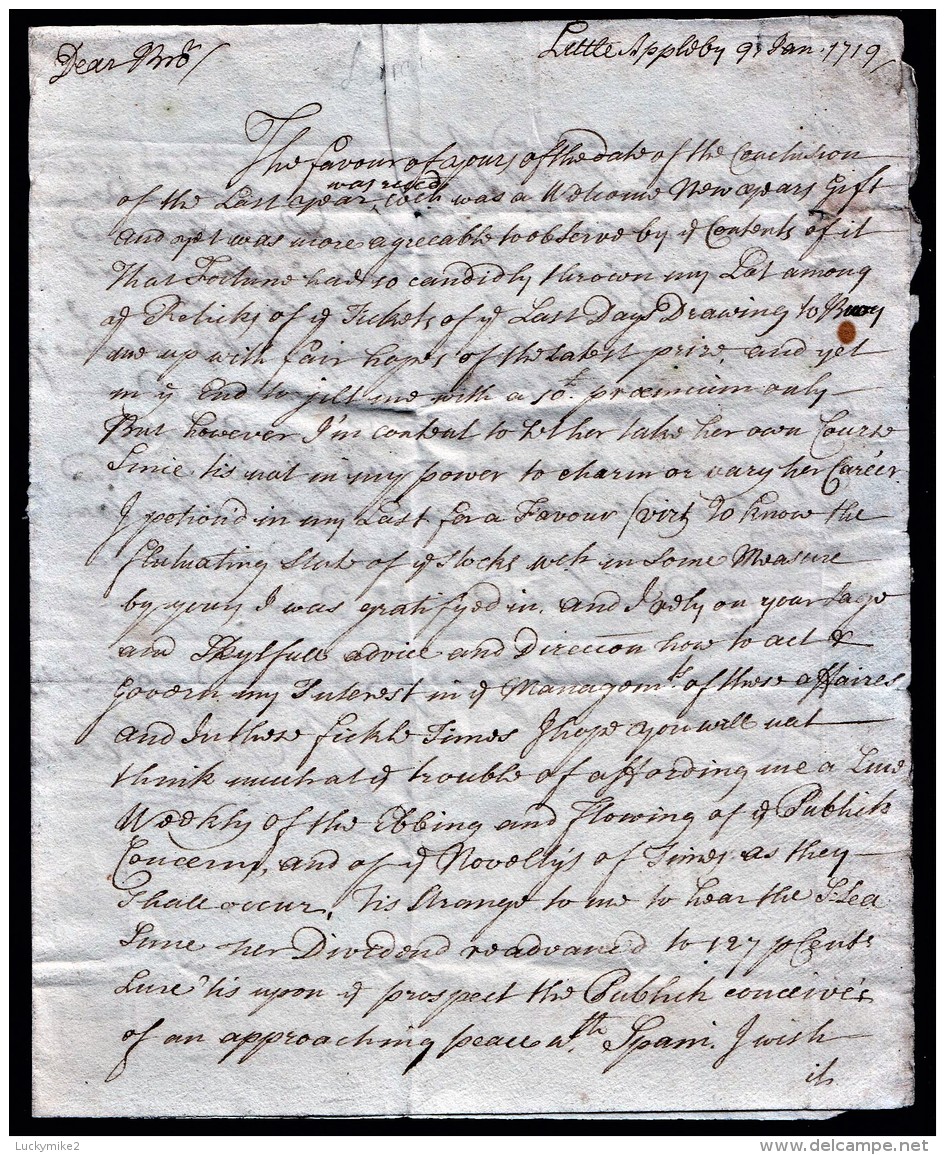 Little Appleby 9th Jan. 1719/
Dear Bro/
The favour of yours of the date of the Conclusion
was reced
of the Last year, wch was a Welcome New years Gift
And yet was more agreeable to observe by ye Contents of it
That Fortune had so candidly thrown my Lot among
ye Relicks of ye Tickets of ye Last Days Drawing to Buoy
me up with fair hopes of the Latest prize, and yet
in ye End to jilt me with a 10£ præmium only
But however I'm content to let her take her own Course
Since tis not in my power to charm or vary her Career.
I petion'd in my Last for a Favour (vizt) To know the
fluluating State of ye Stocks wch in some Measure
by yours I was gratifyed in. and I rely on your Sage
and Skylfull advice and Direccon how to act &
Govern my Interest in ye Managemts. of these affaires
And In these fickle Times I hope you will not
think much at ye trouble of affording me a Line
Weekly of the Ebbing and flowing of ye Publick
Concerns, and of ye Novelty's of Times as they
Shall occur, tis Strange to me to hear the S: Sea
Since her Dividend readvanced to 127 p Cent:
Sure 'tis upon ye prospect the Publick conceives
of an approaching peace wth. Spain. I wish
it
Luckymike2
www.delcampe.net